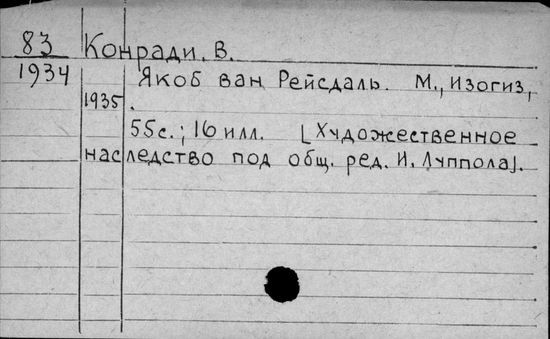 83 Конради, В.
1934 Якоб ван Рейсдаль. М., Изогиз,
1935.
55с.; 16 илл. [Художественное
наследство под общ. ред. И. Луппола].